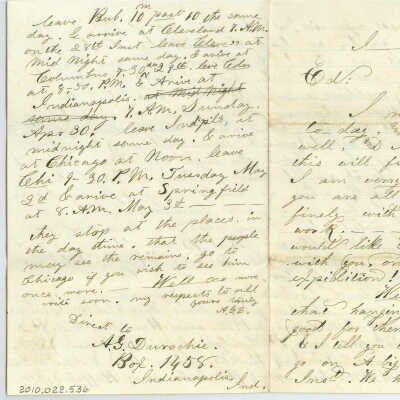 leave Buf. 10 m past 10 the same
day. & arrive at Cleveland 7. A.M.
on the 28th Inst leave Cleve at
Mid Night same day. & arive at
Columbus 7.30 29th. lve Colu
at 8-30. P.M. & Arive at
Indianapolis. at Mid Night
same day. 7. A.M. Sunday.
Apr 30. leave Indpls, at
midnight same day. & arive
at Chicago at Noon. leave
Chi 9-30. P.M. Tuesday May
2d & arive at Springfield
at 8. A.M. May 3d —
they stop at the places in
the day time. that the people
may see the remains. go to
Chicago if you wish to see him
once more. — Well no more
write soon. my respects to all
yours truly
A.G.D.
Direct to
A.G. Durochie.
Box. 1458.
Indianapolis, Ind.
2010.022.536
I
Ed.
I
to-day.
well.
this will
I am very
you are all
finely with
work. —
would like
with you. on
expibition!
We
that hanging
good for them
& I tell you
go on A
Inst. We h